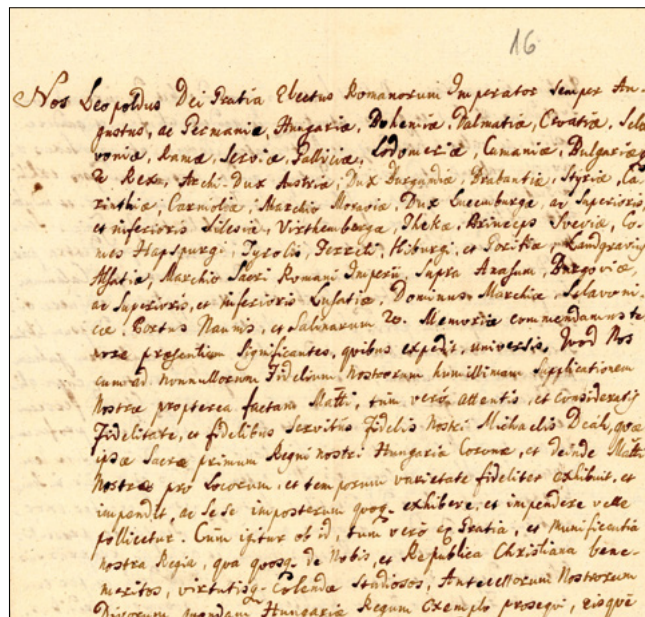 16
Nos Leopoldus Dei Gratia Electus Romanorum Imperator Semper Au-
gustus, ac Germaniæ, Hungariæ, Bohemiæ, Dalmatiæ, Croatiæ, Scla
voniæ, Ramæ, Serviæ, Galliciæ, Lodomeriæ, Cumaniæ, Bulgariæq
Rex, Archi-Dux Austriæ, Dux Burgundiæ, Brabantiæ, Styriæ, Ca
rinthiæ, Carnioliæ, Marchio Moraviæ Dux Lucemburgæ, ac Superioris,
et inferioris Silesiæ, Virthembergæ, Thekæ, Princeps Sveviæ, Co-
mes Hapspurgi, Tyrolis, Ferreti, Kiburgi, et Goritiæ, Landgravius
Alsatiæ, Marchio Sacri Romani Imperii, Supra Anasum, Burgoviæ,
ac Superioris, et inferioris Lusatiæ, Dominus Marchiæ Sclavoni-
cæ, Portus Naonis, et Salinarum &c. Memoriæ commendamus te
nore præsentium significantes, quibus expedit, universis, Quod Nos
cum ad nonnullorum Fidelium Nostrorum humillimam supplicationem
Nostræ propterea factam Matti, tum vero attentis, et consideratis
Fidelitate, et fidelibus Servitiis Fidelis nostri Michaelis Deák, quæ
ipse Sacræ primum Regni nostri Hungariæ Coronæ, et deinde Matti
Nostræ pro Locorum, et temporum varietate fideliter exhibuit, et
impendit, ac se se imposterum quoq. exhibere, et impendere velle
pollicetur. Cum igitur ob id, tum verò ex Gratia, et munificentia
nostra Regia, qua quosq. de Nobis, et Republica Christiana bene-
meritos, virtutisq. Colendæ Studiosos, Antecessorum Nostrorum
Divorum quondam Hungariæ Regum Exemplo prosequi, eisquè